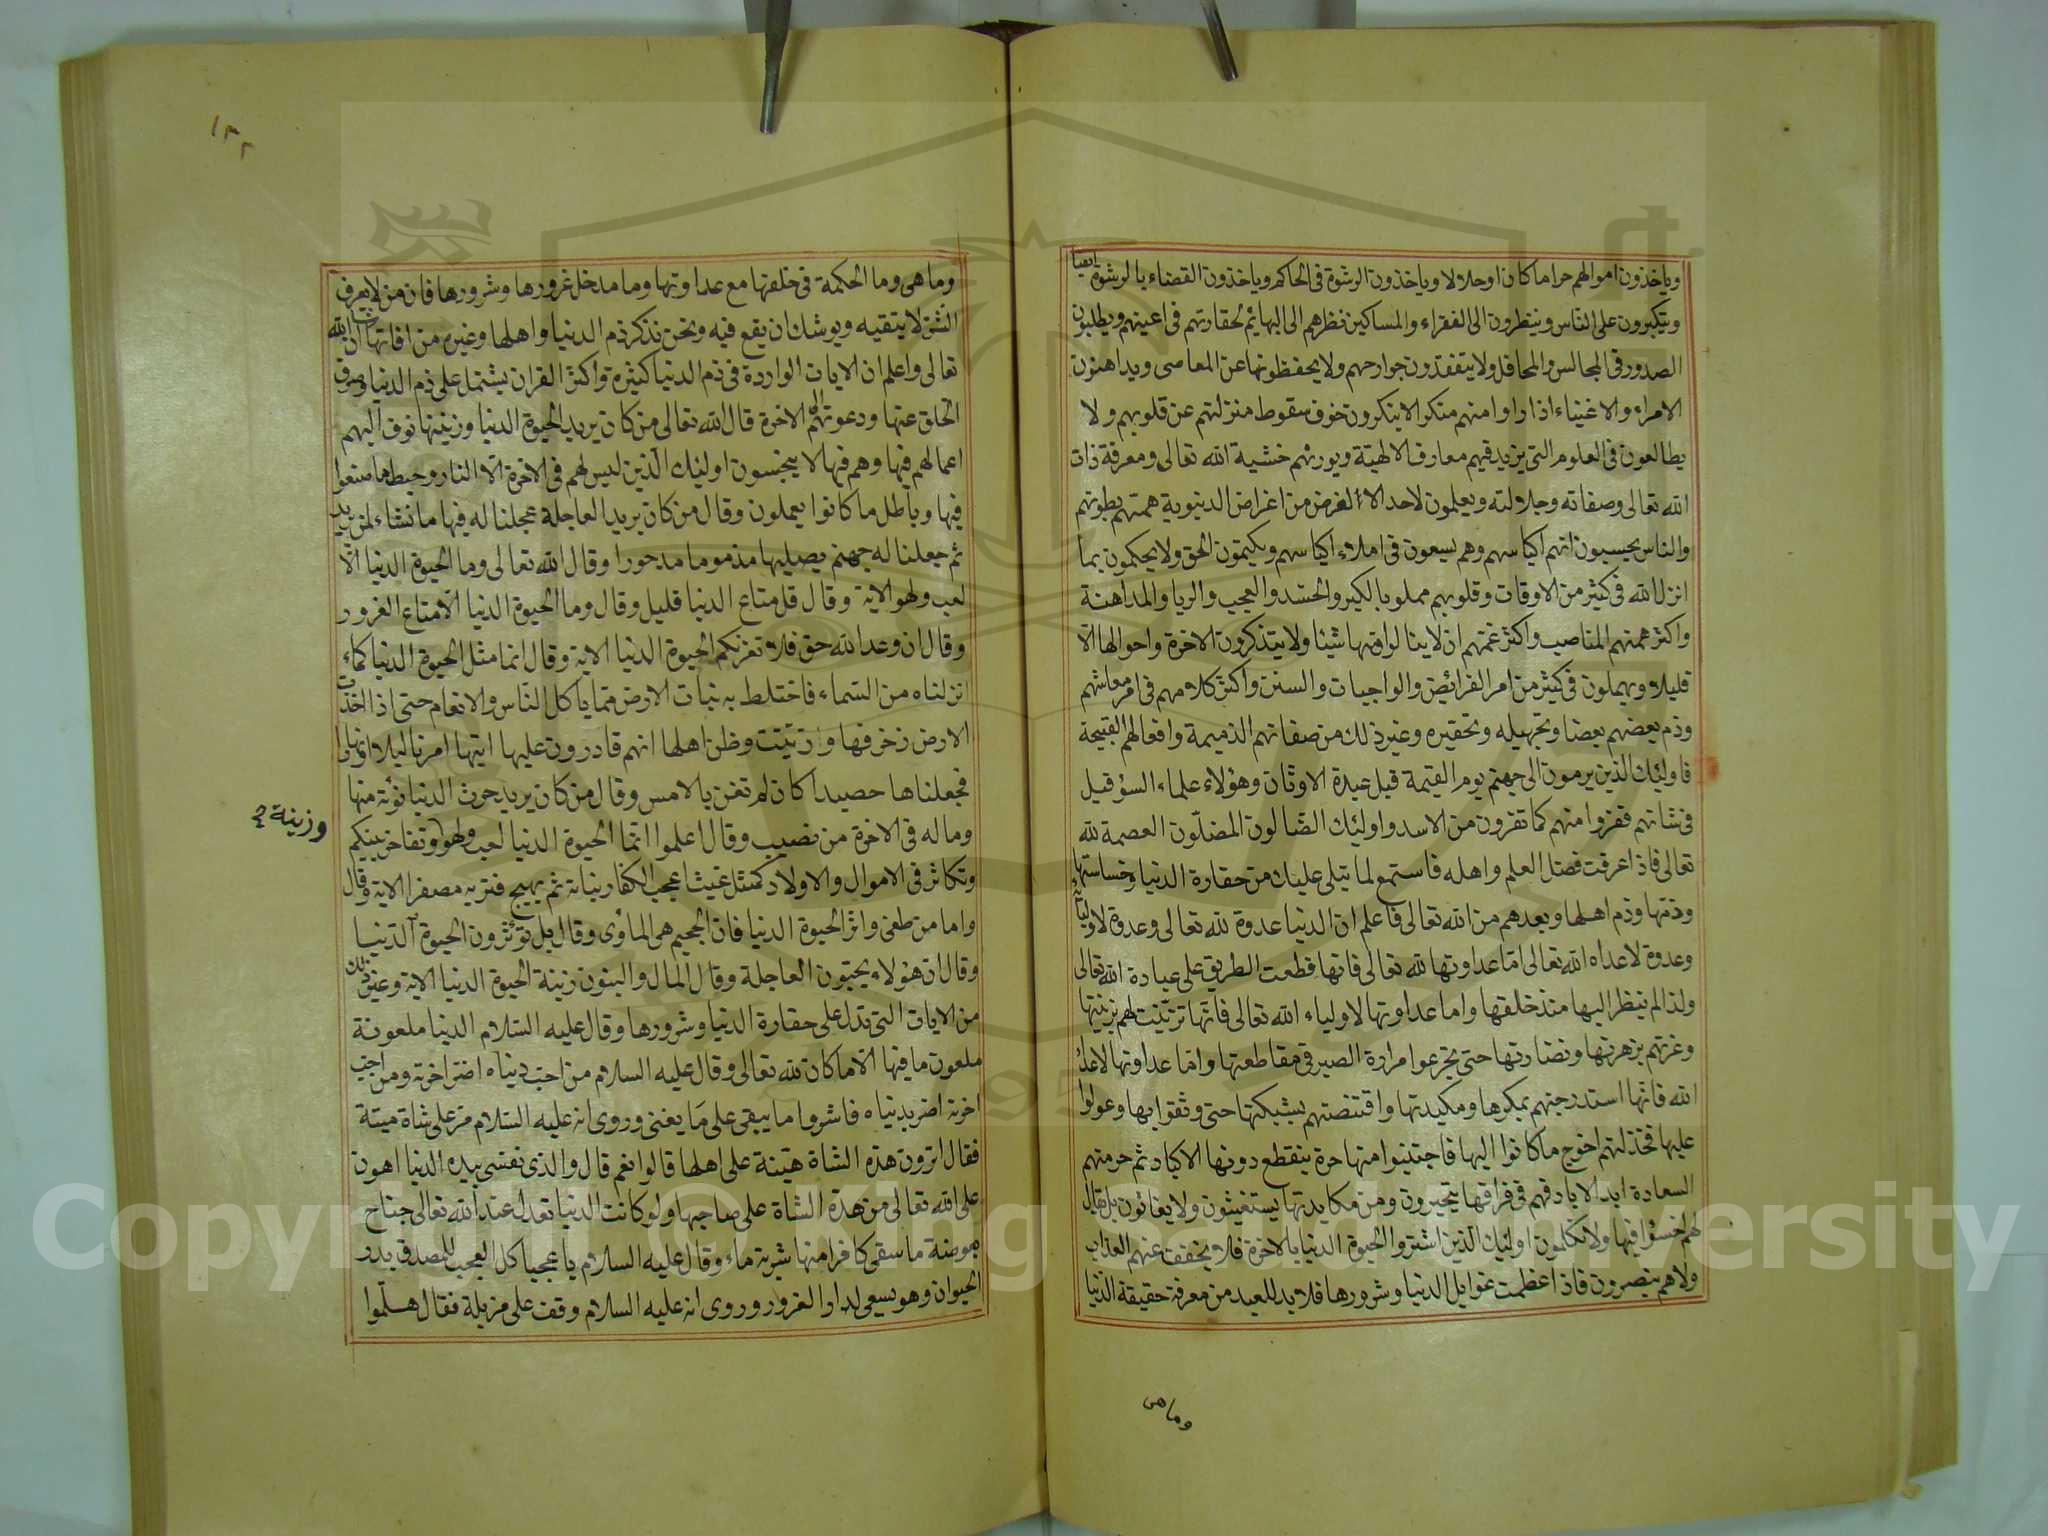 وياخذون اموالهم حراما كان او حلالا وياخذون الرشوة في الحاكم وياخذون القضاء بالرشوة ايضا
ويتكبرون على الناس وينظرون الى الفقراء والمساكين نظرهم الى البهائم لحقارتهم في اعينهم ويطلبون
الصدور في المجالس والمحافل ولا يتفقدون جوارحهم ولا يحفظونها عن المعاصى ويداهنون
الامراء والاغنياء اذا راوا منهم منكرا لا ينكرون خوف سقوط منزلتهم عن قلوبهم ولا
يطالعون في العلوم التى يزيد فيهم معارف الالهية ويورثهم خشية الله تعالى ومعرفة ذات
الله تعالى وصفاته وجلالته ويعلمون لاحد الا لغرض من اغراض الدنيوية همتهم بطونهم
والناس يحسبون انهم اكياسهم وهم يسعون في املاء اكياسهم ويكتمون الحق ولا يحكمون بما
انزل الله في كثير من الاوقات وقلوبهم مملو بالكبر والحسد والعجب والريا والمداهنة
واكثر همتهم المناصب واكثر غمتهم ان لا ينالوا منها شيئا ولا يتذكرون الاخرة واحوالها الا
قليلا ويهملون في كثير من امر الفرائض والواجبات والسنن واكثر كلامهم في امر معاشهم
وذم بعضهم بعضا وتجهيله وتحقيره وغير ذلك من صفاتهم الذميمة وافعالهم القبيحة
فاولئك الذين يرمون الى جهنم يوم القيمة قبل عبدة الاوثان وهؤلاء علماء السؤ قيل
في شانهم ففروا منهم كما تفرون من الاسد واولئك الضالون المضلون العصمة لله
تعالى فاذا عرفت فضل العلم واهله فاستمع لما يتلى عليك من حقارة الدنيا وخساستها
وذمها وذم اهلها وبعدهم من الله تعالى فاعلم ان الدنيا عدوة لله تعالى وعدوة لاوليائه
وعدوة لاعداه الله تعالى اما عداوتها لله تعالى فانها قطعت الطريق على عبادة الله تعالى
ولذا لم ينظر اليها منذ خلقها واما عداوتها لاولياء الله تعالى فانها تزينت لهم بزينتها
وغرتهم بزهرتها ونضارتها حتى تجرعوا مرارة الصبر في مقاطعتها واما عداوتها لاعداء
الله فانها استدرجتهم بمكرها ومكيدتها واقتنصتهم بشبكتها حتى وثقوا بها وعولوا
عليها فخذلتهم احوج ما كانوا اليها فاجتنبوا منها حرة ينقطع دونها الاكباد ثم حرمتهم
السعادة ابد الاباد فهم في فراقها يتحيرون ومن مكايدتها يستغيثون ولا يغاثون بل يقال
لهم اخسؤا فيها ولا تكلمون اولئك الذين اشتروا الحيوة الدنيا بالاخرة فلا يخفف عنهم العذاب
ولا هم ينصرون فاذا عظمت غوايل الدنيا وشرورها فلا بد للعبد من معرفة حقيقة الدنيا
وما هى
١٣٢
وما هى وما الحكمة في خلقها مع عداوتها وما مدخل غرورها وشرورها فان من لا يعرف
الشر لا يتقيه ويوشك ان يقع فيه ونحن نذكر ذم الدنيا واهلها وغيره من افاتها ان شاء الله
تعالى واعلم ان الايات الواردة في ذم الدنيا كثيرة واكثر القران يشتمل على ذم الدنيا وصرف
الخلق عنها ودعوتهم الى الاخرة قال الله تعالى من كان يريد الحيوة الدنيا وزينتها نوف اليهم
اعمالهم فيها وهم فيها لا يبخسون اولئك الذين ليس لهم في الاخرة الا النار وحبط ما صنعوا
فيها وباطل ما كانوا يعملون وقال من كان يريد العاجلة عجلنا له فيها ما نشاء لمن نريد
ثم جعلنا له جهنم يصليها مذموما مدحورا وقال الله تعالى وما الحيوة الدنيا الا
لعب ولهو الاية وقال قل متاع الدنيا قليل وقال وما الحيوة الدنيا الا متاع الغرور
وقال ان وعد الله حق فلا تغرنكم الحيوة الدنيا الاية وقال انما مثل الحيوة الدنيا كماء
انزلناه من السماء فاختلط به نبات الارض مما ياكل الناس والانعام حتى اذا اخذت
الارض زخرفها وازينت وظن اهلها انهم قادرون عليها اتيها امرنا ليلا او نهارا
فجعلناها حصيدا كان لم تغن بالامس وقال من كان يريد حرث الدنيا نؤته منها
وما له في الاخرة من نصيب وقال اعلموا انما الحيوة الدنيا لعب ولهو وتفاخر بينكم
وزينة صح
وتكاثر في الاموال والاولاد كمثل غيث اعجب الكفار نباته ثم يهيج فتريه مصفرا الاية وقال
واما من طغى واثر الحيوة الدنيا فان الجحيم هى الماوى وقال بل تؤثرون الحيوة الدنيا
وقال ان هؤلاء يحبون العاجلة وقال المال والبنون زينة الحيوة الدنيا الاية وغير ذلك
من الايات التى تدل على حقارة الدنيا وشرورها وقال عليه السلام الدنيا ملعونة
ملعون ما فيها الا ما كان لله تعالى وقال عليه السلام من احب دنياه اضر اخرته ومن احب
اخرته اضر بدنياه فاثروا ما يبقى على ما يفنى وروى انه عليه السلام مر على شاة ميتة
فقال اترون هذه الشاة هينة على اهلها قالوا نعم قال والذى نفسى بيده الدنيا اهون
على الله تعالى من هذه الشاة على صاحبها ولو كانت الدنيا تعدل عند الله تعالى جناح
بعوضة ما سقى كافرا منها شربة ماء وقال عليه السلام يا عجبا كل العجب للمصدق بدار
الحيوان وهو يسعى لدار الغرور وروى انه عليه السلام وقف على مزبلة فقال هلموا
Copyright © King Saud University